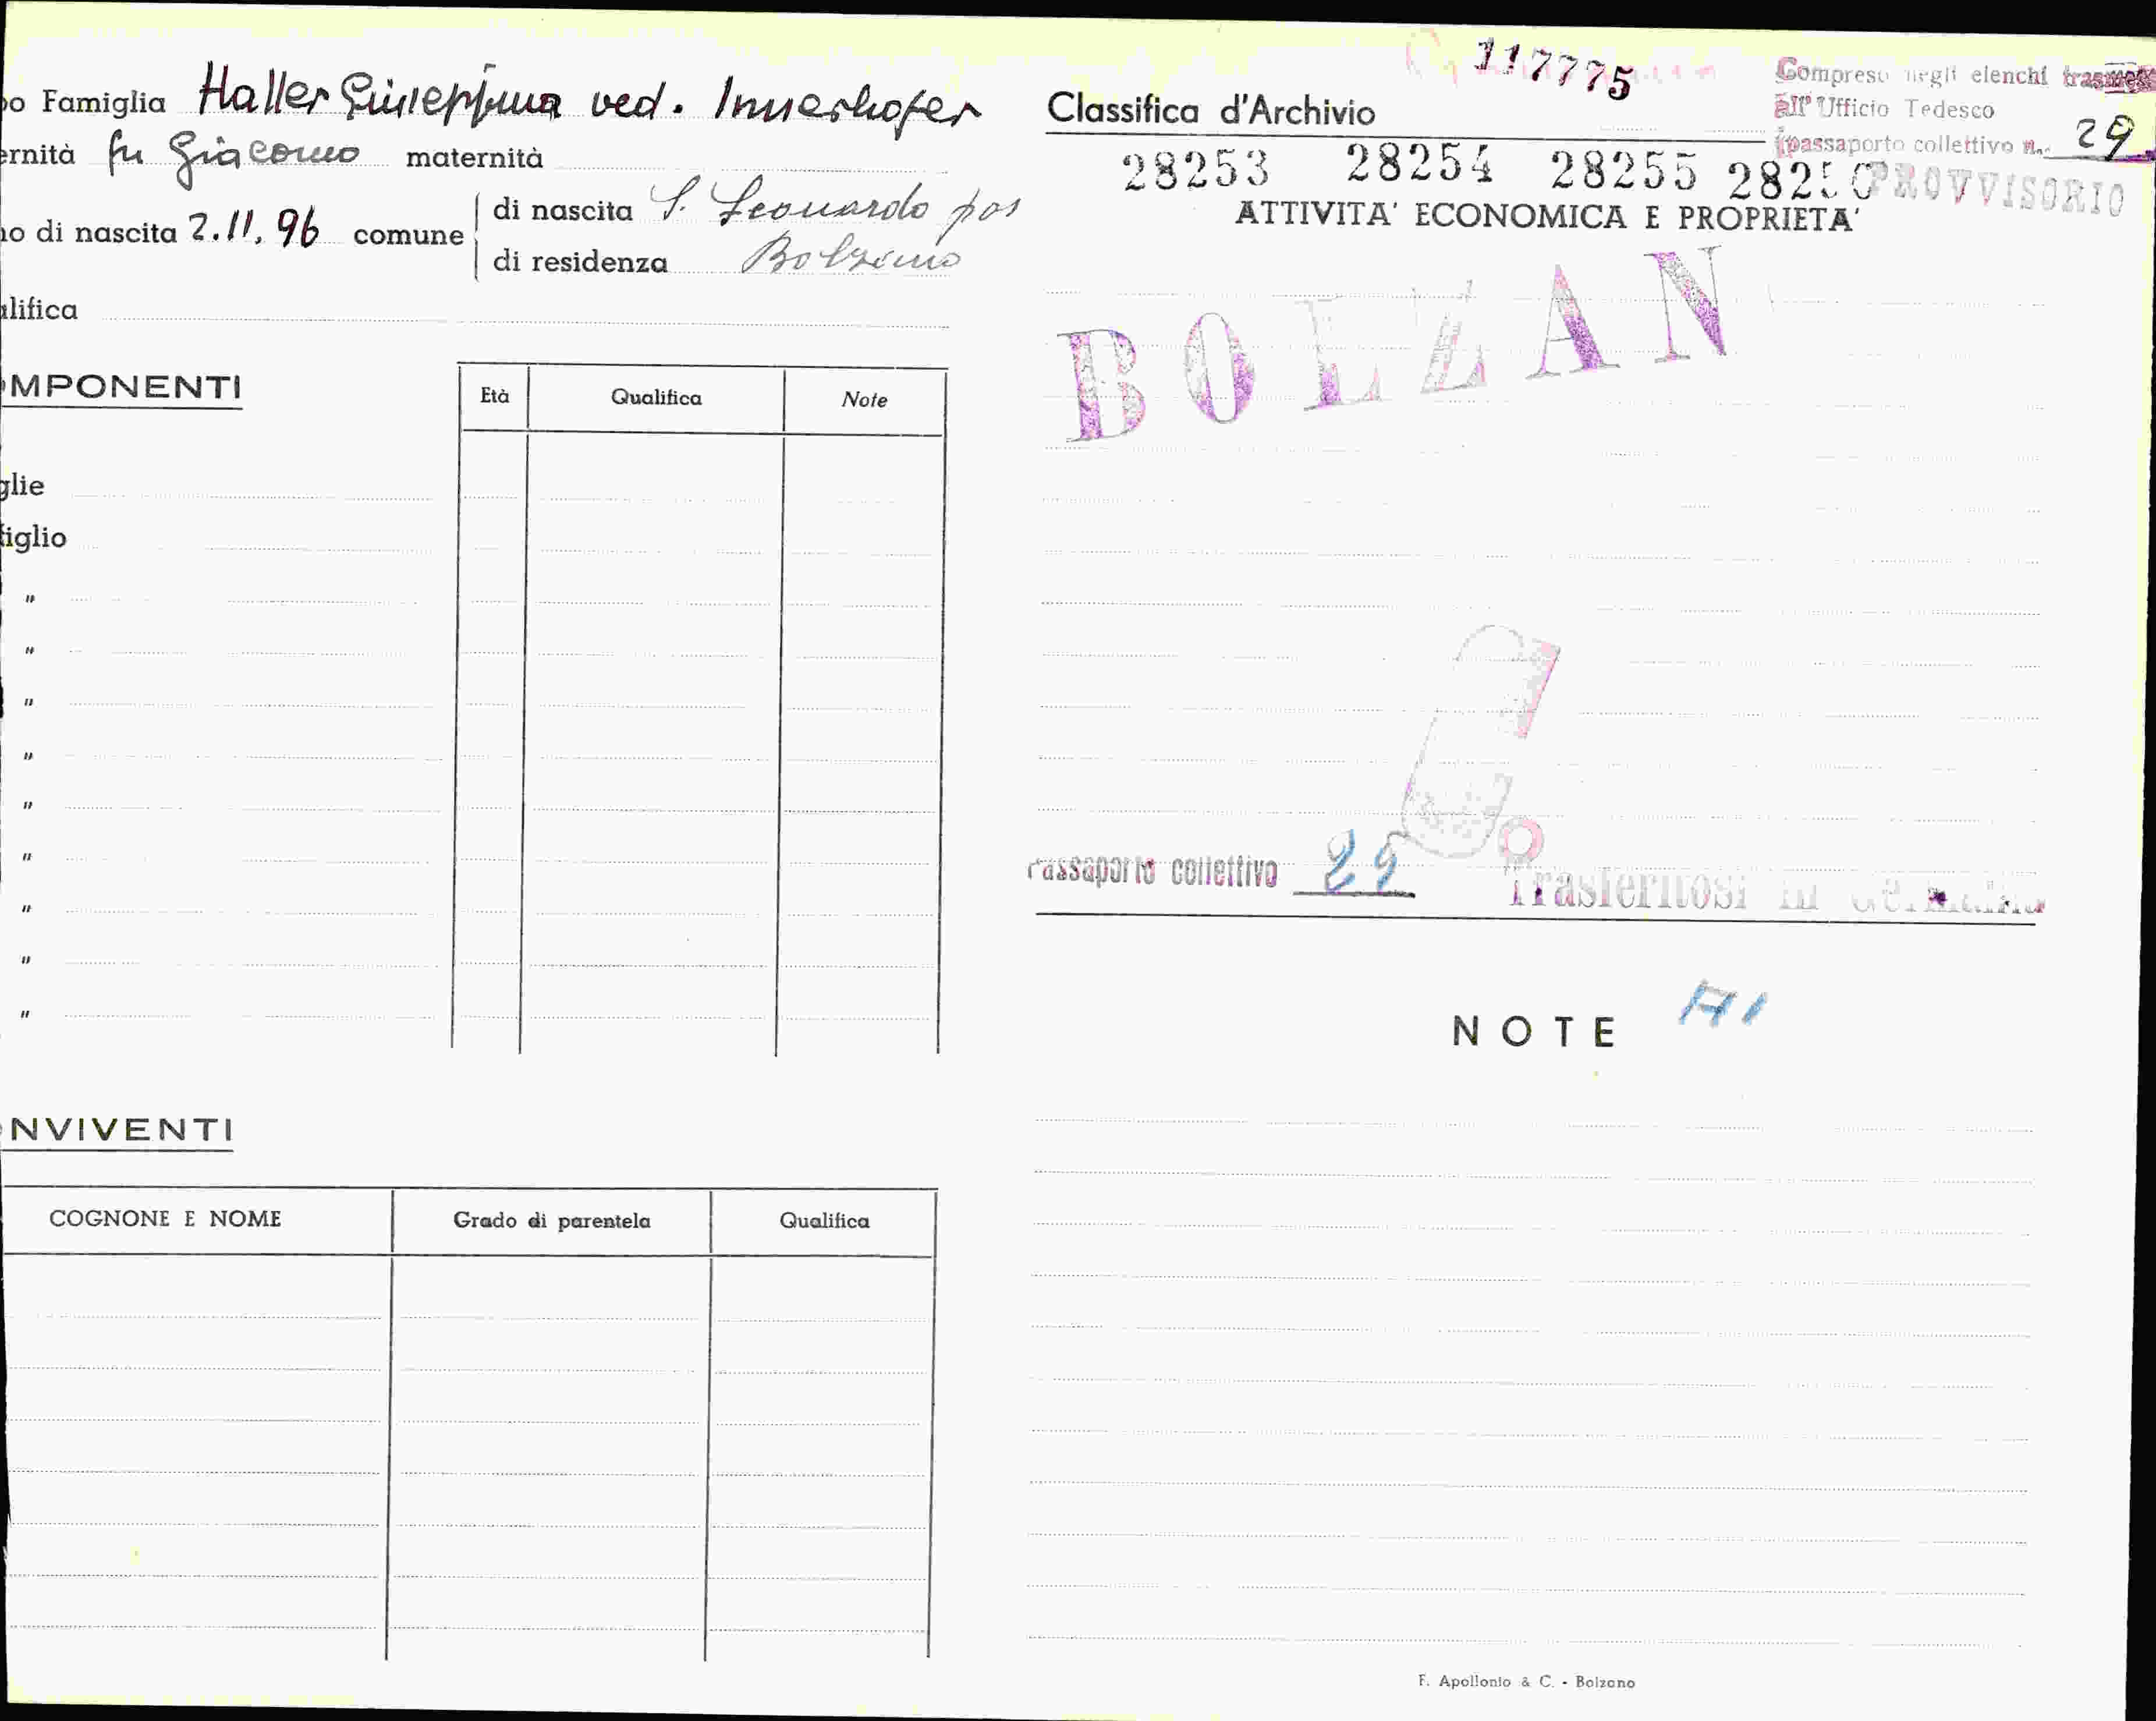 o Famiglia Haller Giuseppina ved. Innerhofer
ernità fu Giacomo maternità
o di nascita 2.11.96 comune
di nascita S. Leonardo pas
di residenza Bolzano
lifica
MPONENTI
Età Qualifica Note
glie
figlio
"
"
"
"
"
"
"
"
"
NVIVENTI
COGNONE E NOME Grado di parentela Qualifica
117775
Classifica d'Archivio
Compreso negli elenchi
all' Ufficio Tedesco
passaporto collettivo n. 29
28253 28254 28255
PROVVISORIO
ATTIVITA' ECONOMICA E PROPRIETA'
BOLZAN
Passaporto collettivo 29
Trasferitosi in Germania
NOTE
F. Apollonio & C. - Bolzano